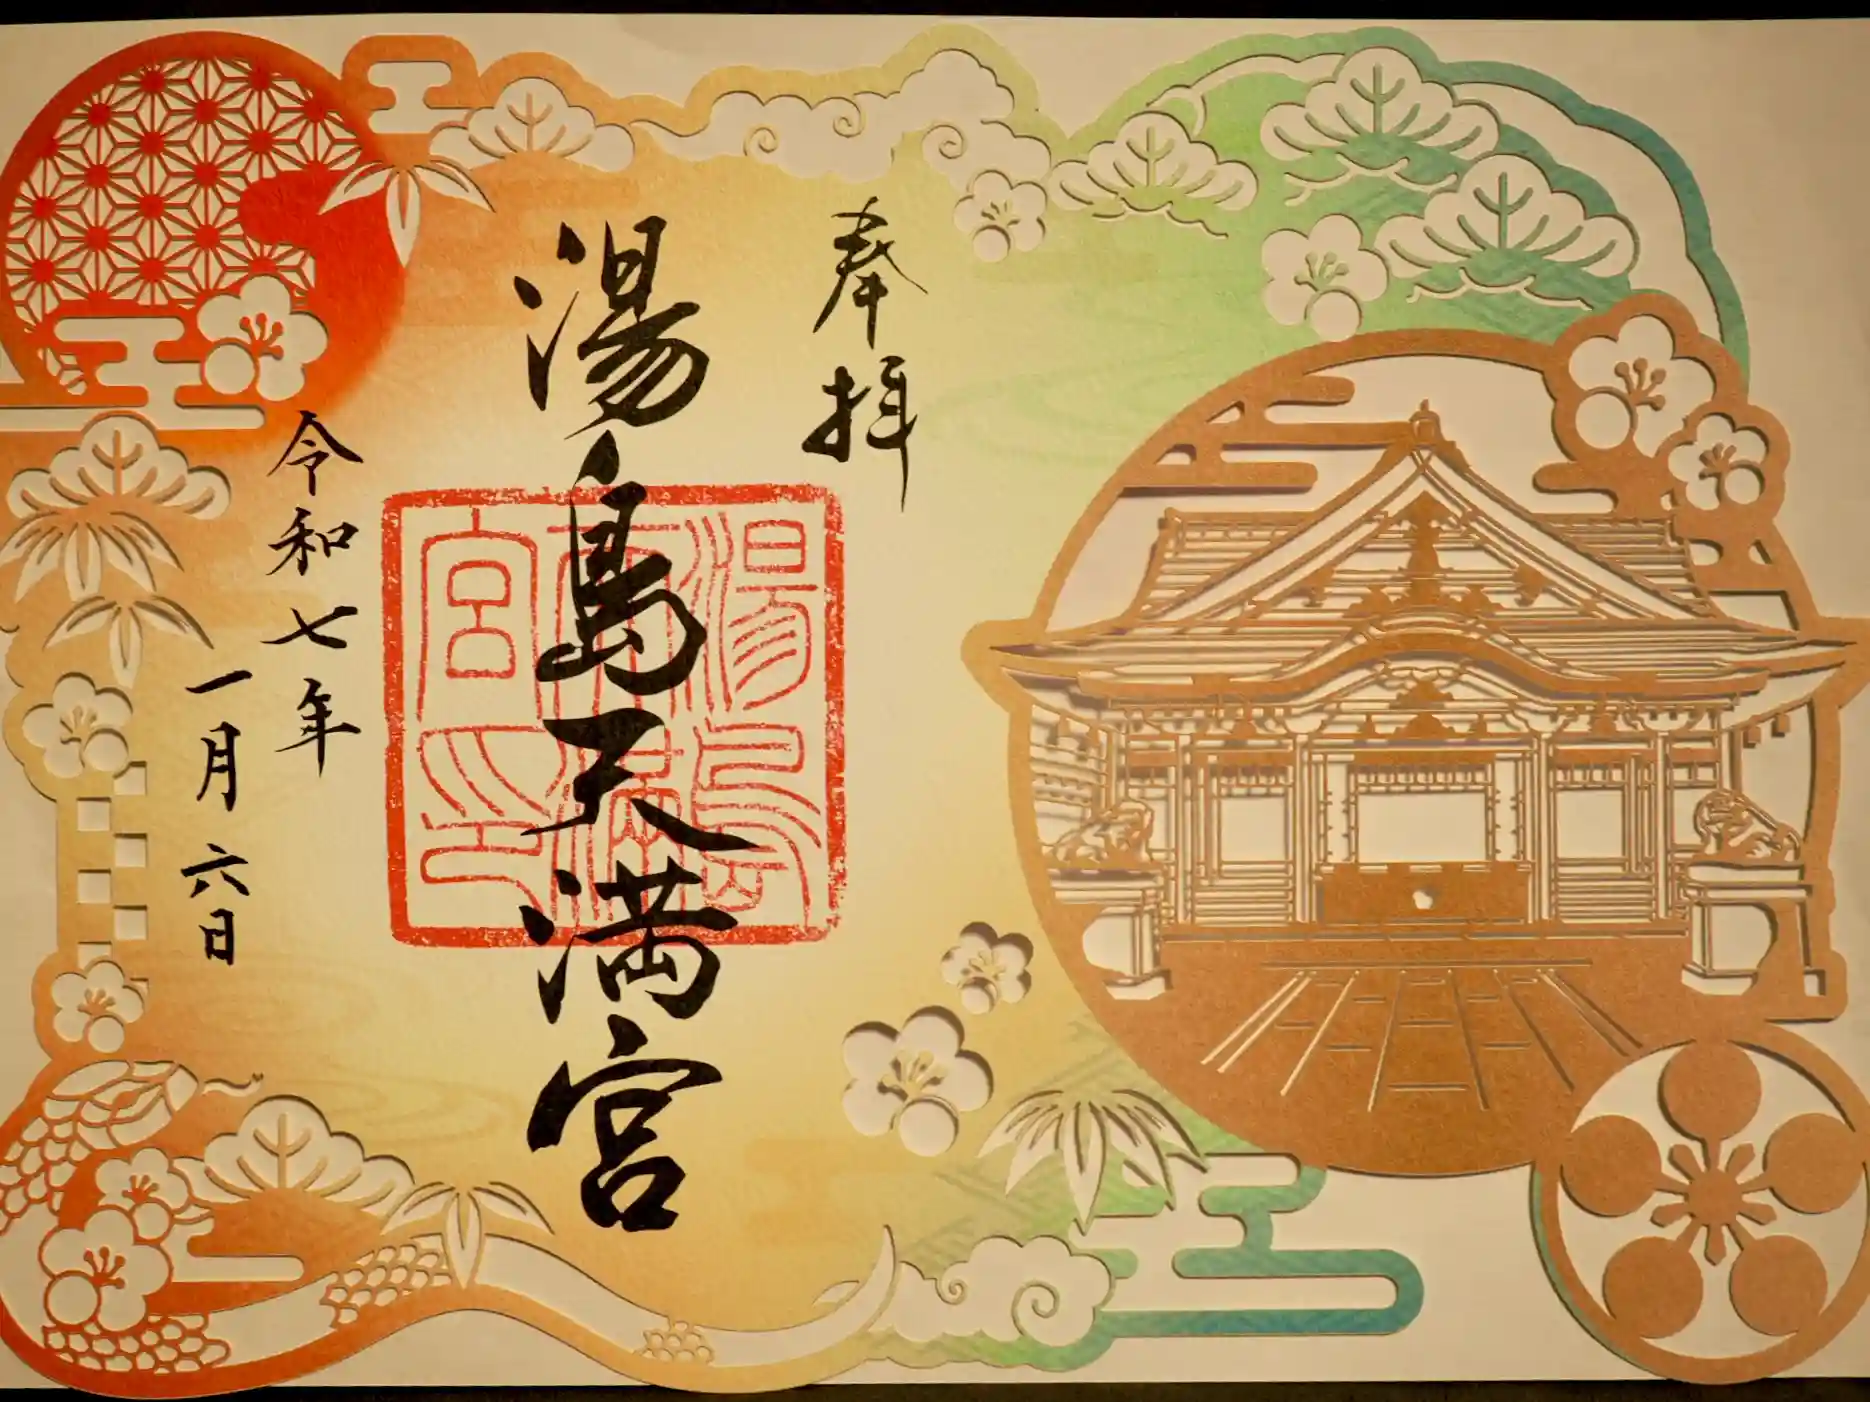 奉拝
湯島天満宮
湯島天満宮印
令和七年
一月六日